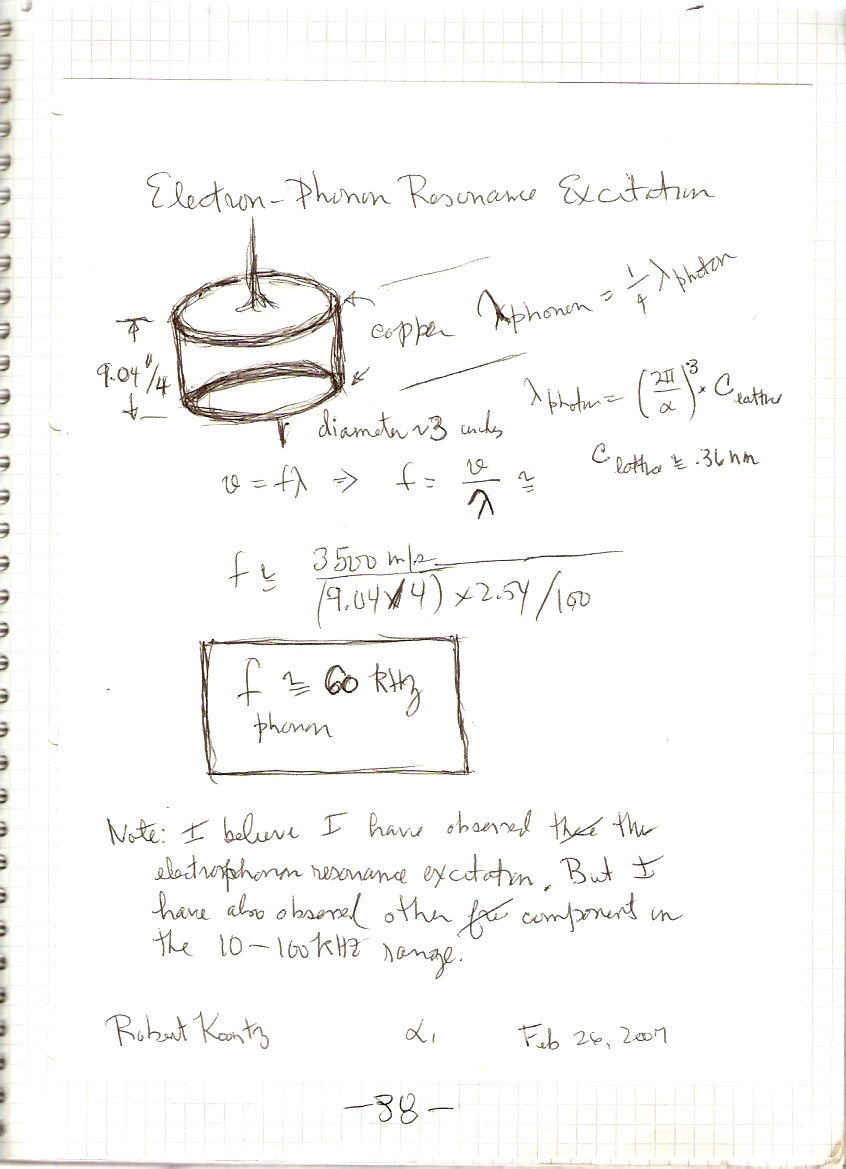 Electron-Phonon Resonance Excitation
copper λphonon = 1/4 λphoton
9.04"/4
λphoton = (2π/α)³ · Clattice
diameter ~3 inches
Clattice ≅ .36 nm
v = fλ ⇒ f = v/λ ≅
f ≅ 3500 m/s / (9.04/4) × 2.54/100
f ≅ 60 kHz
phonon
Note: I believe I have observed the
electrophonon resonance excitation. But I
have also observed other component in
the 10-100 kHz range.
Robert Koontz α₁ Feb 26, 2007
-38-